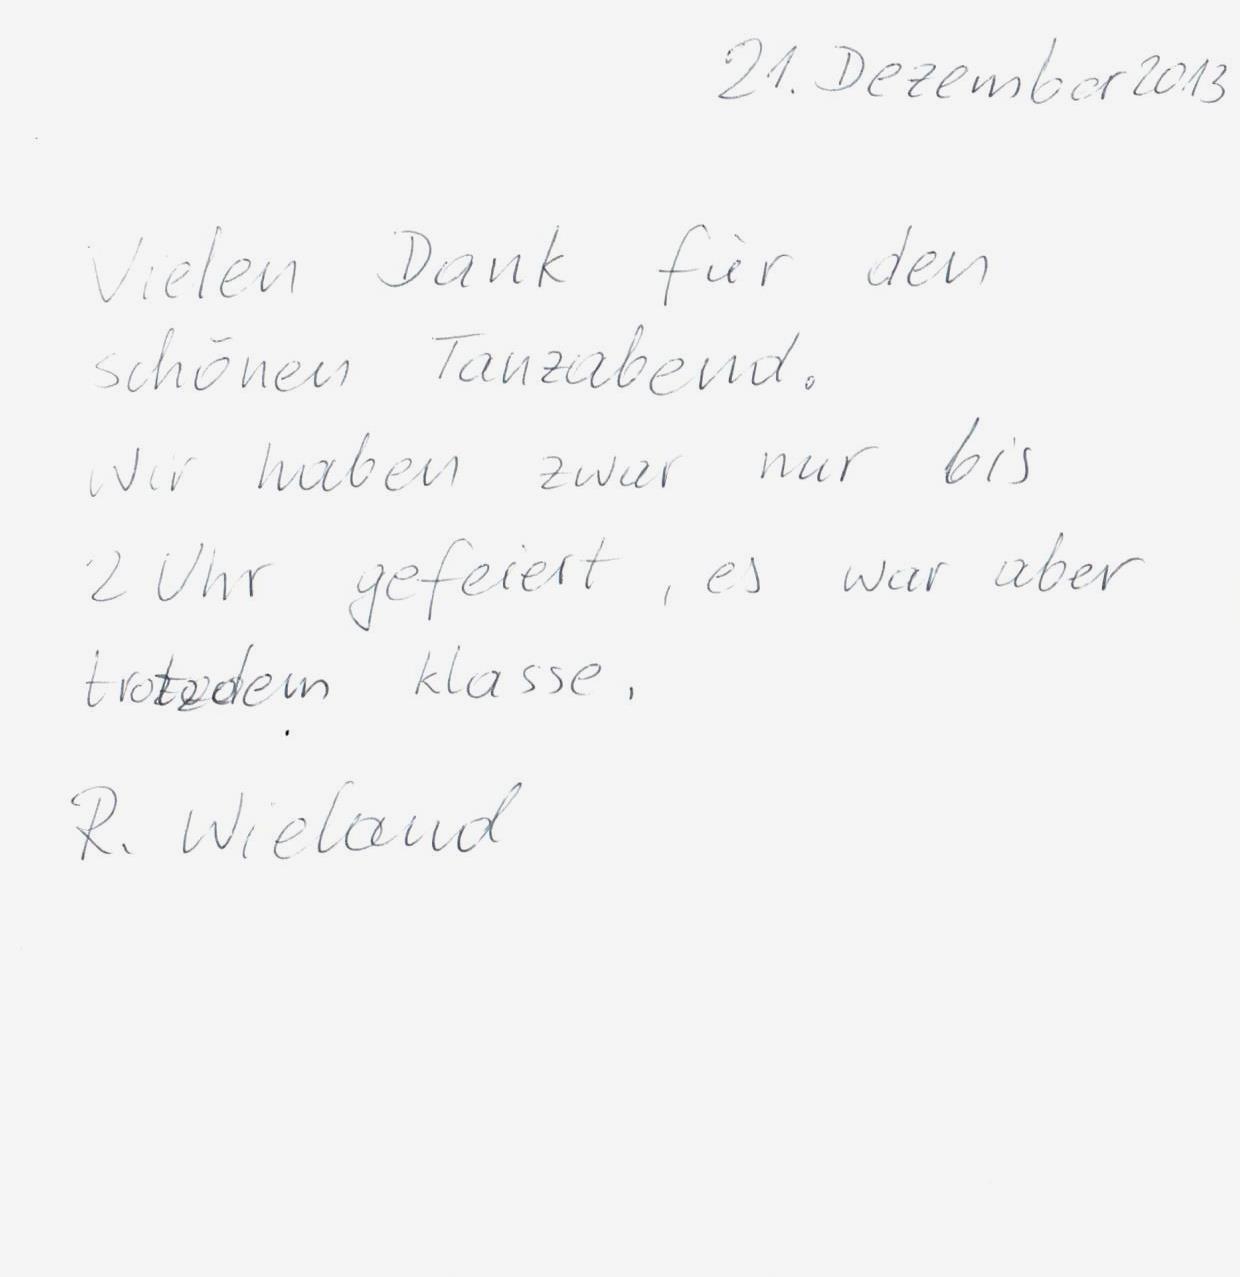 21. Dezember 2013
Vielen Dank für den
schönen Tanzabend.
Wir haben zwar nur bis
2 Uhr gefeiert, es war aber
trotzdem klasse.
R. Wieland